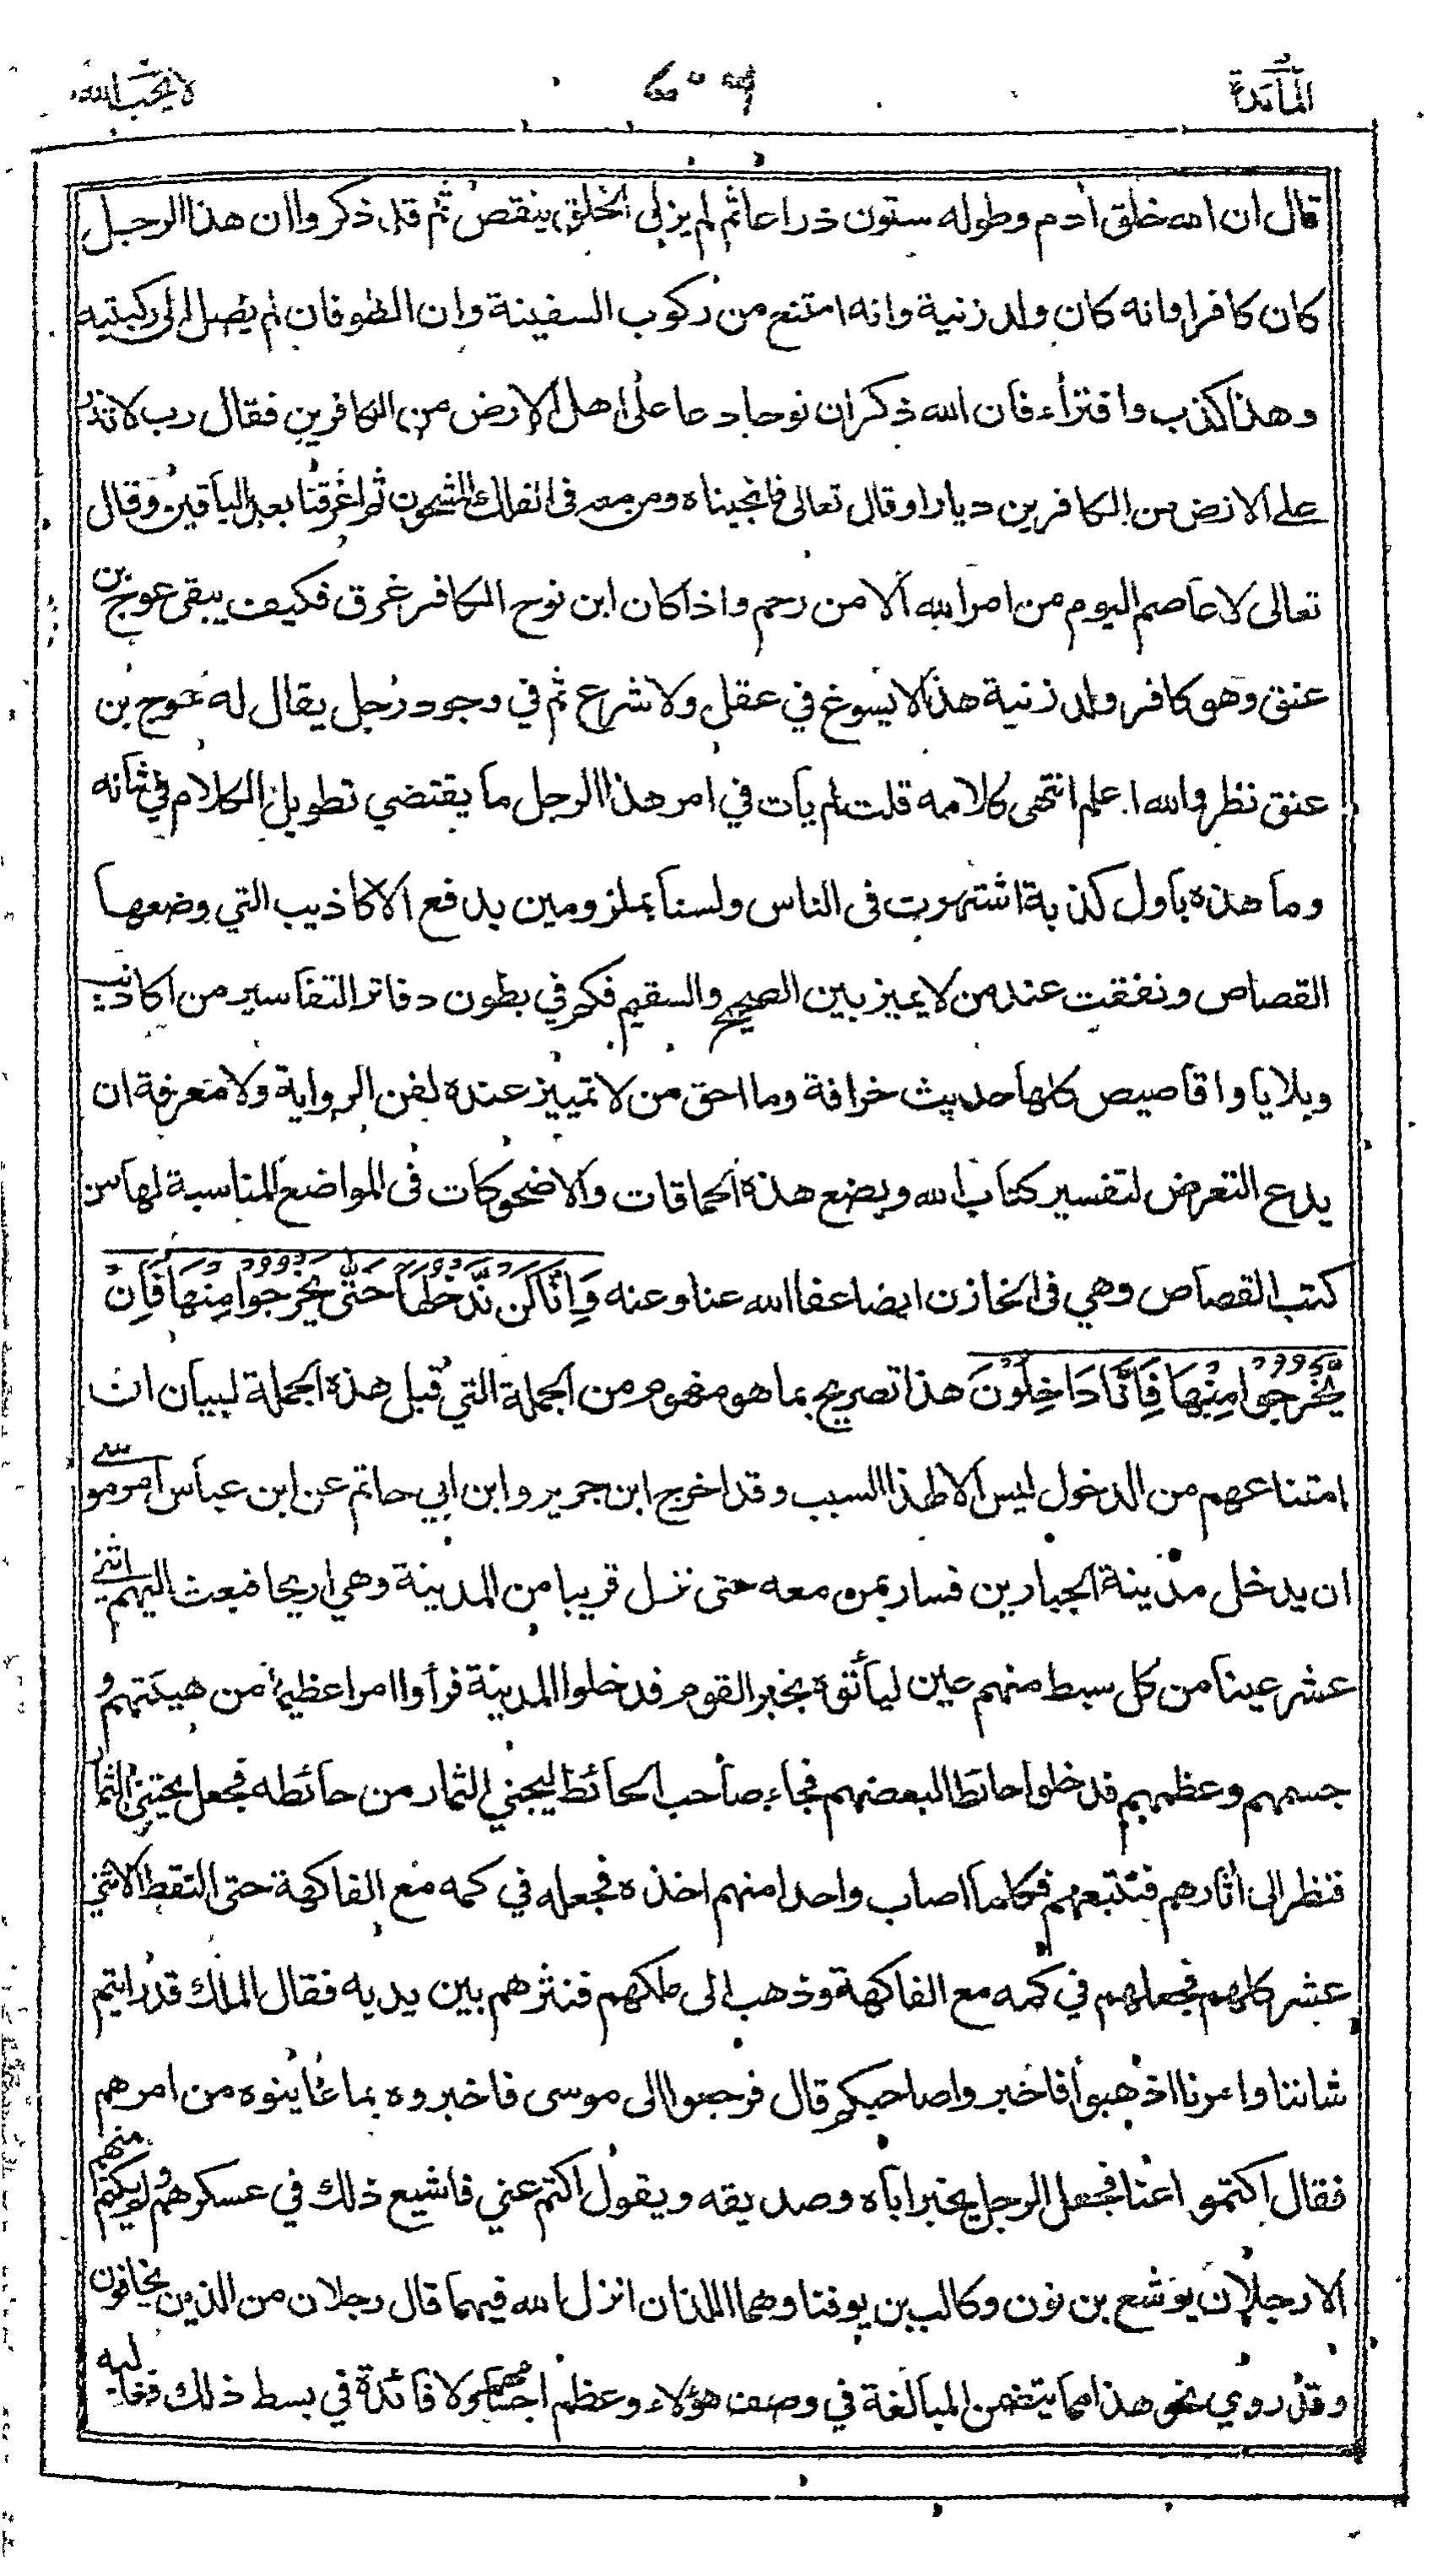 المائدة ٦٠٩ لا يحب الله
قال ان الله خلق أدم وطوله ستون ذراعا ثم لم يزل الخلق ينقص ثم قد ذكروا ان هذا الرجل
كان كافرا وانه كان ولد زنية وانه امتنع من ركوب السفينة وان الطوفان لم يصل الى ركبتيه
وهذا كذب وافتراء فان الله ذكر ان نوحا دعا على اهل الارض من الكافرين فقال رب لا تذر
على الارض من الكافرين ديارا وقال تعالى فانجيناه ومن معه فى الفلك المشحون ثم اغرقنا بعد الباقين وقال
تعالى لا عاصم اليوم من امر الله الا من رحم واذا كان ابن نوح الكافر غرق فكيف يبقى عوج بن
عنق وهو كافر ولد زنية هذا لا يسوغ في عقل ولا شرع ثم في وجود رجل يقال له عوج بن
عنق نظر والله اعلم انتهى كلامه قلت لم يأت في امر هذا الرجل ما يقتضي تطويل الكلام في شأنه
وما هذه باول كذبة اشتهرت فى الناس ولسنا بملزومين بدفع الاكاذيب التي وضعها
القصاص ونفقت عند من لا يميز بين الصحيح والسقيم فكم في بطون دفاتر التفاسير من اكاذيب
وبلايا واقاصيص كلها حديث خرافة وما احق من لا تمييز عنده لفن الرواية ولا معرفة ان
يدع التعرض لتفسير كتاب الله ويضع هذه الحماقات والاضحوكات فى المواضع المناسبة لها من
كتب القصاص وهي فى الخازن ايضا عفا الله عنا وعنه وَاِنَّا لَنْ نَّدْخُلَهَا حَتّٰى يَخْرُجُوْا مِنْهَا فَاِنْ
يَّخْرُجُوْا مِنْهَا فَاِنَّا دَاخِلُوْنَ هذا تصريح بما هو مفهوم من الجملة التي قبل هذه الجملة لبيان ان
امتناعهم من الدخول ليس الا لهذا السبب وقد اخرج ابن جرير وابن ابي حاتم عن ابن عباس امر موسى
ان يدخل مدينة الجبارين فسار بمن معه حتى نزل قريبا من المدينة وهي اريحا فبعث اليهم اثني
عشر عينا من كل سبط منهم عين ليأتوه بخبر القوم فدخلوا المدينة فرأوا امرا عظيما من هيئتهم و
جسمهم وعظمهم فدخلوا حائطا لبعضهم فجاء صاحب الحائط ليجني الثمار من حائطه فجعل يجتني الثمار
فنظر الى أثارهم فتتبعهم فكلما اصاب واحدا منهم اخذه فجعله في كمه مع الفاكهة حتى التقط الاثني
عشر كلهم فجعلهم في كمه مع الفاكهة وذهب الى ملكهم فنثرهم بين يديه فقال الملك قد رايتم
شاننا وامرنا اذهبوا فاخبروا صاحبكم قال فرجعوا الى موسى فاخبروه بما عاينوه من امرهم
فقال اكتموا عنا فجعل الرجل يخبر اباه وصديقه ويقول اكتم عني فاشيع ذلك في عسكرهم ولم يكتم منهم
الا رجلان يوشع بن نون وكالب بن يوفنا وهما اللذان انزل الله فيهما قال رجلان من الذين يخافون
وقد روي نحو هذا مما يتضمن المبالغة في وصف هؤلاء وعظم اجسامهم ولا فائدة في بسط ذلك فغالبه